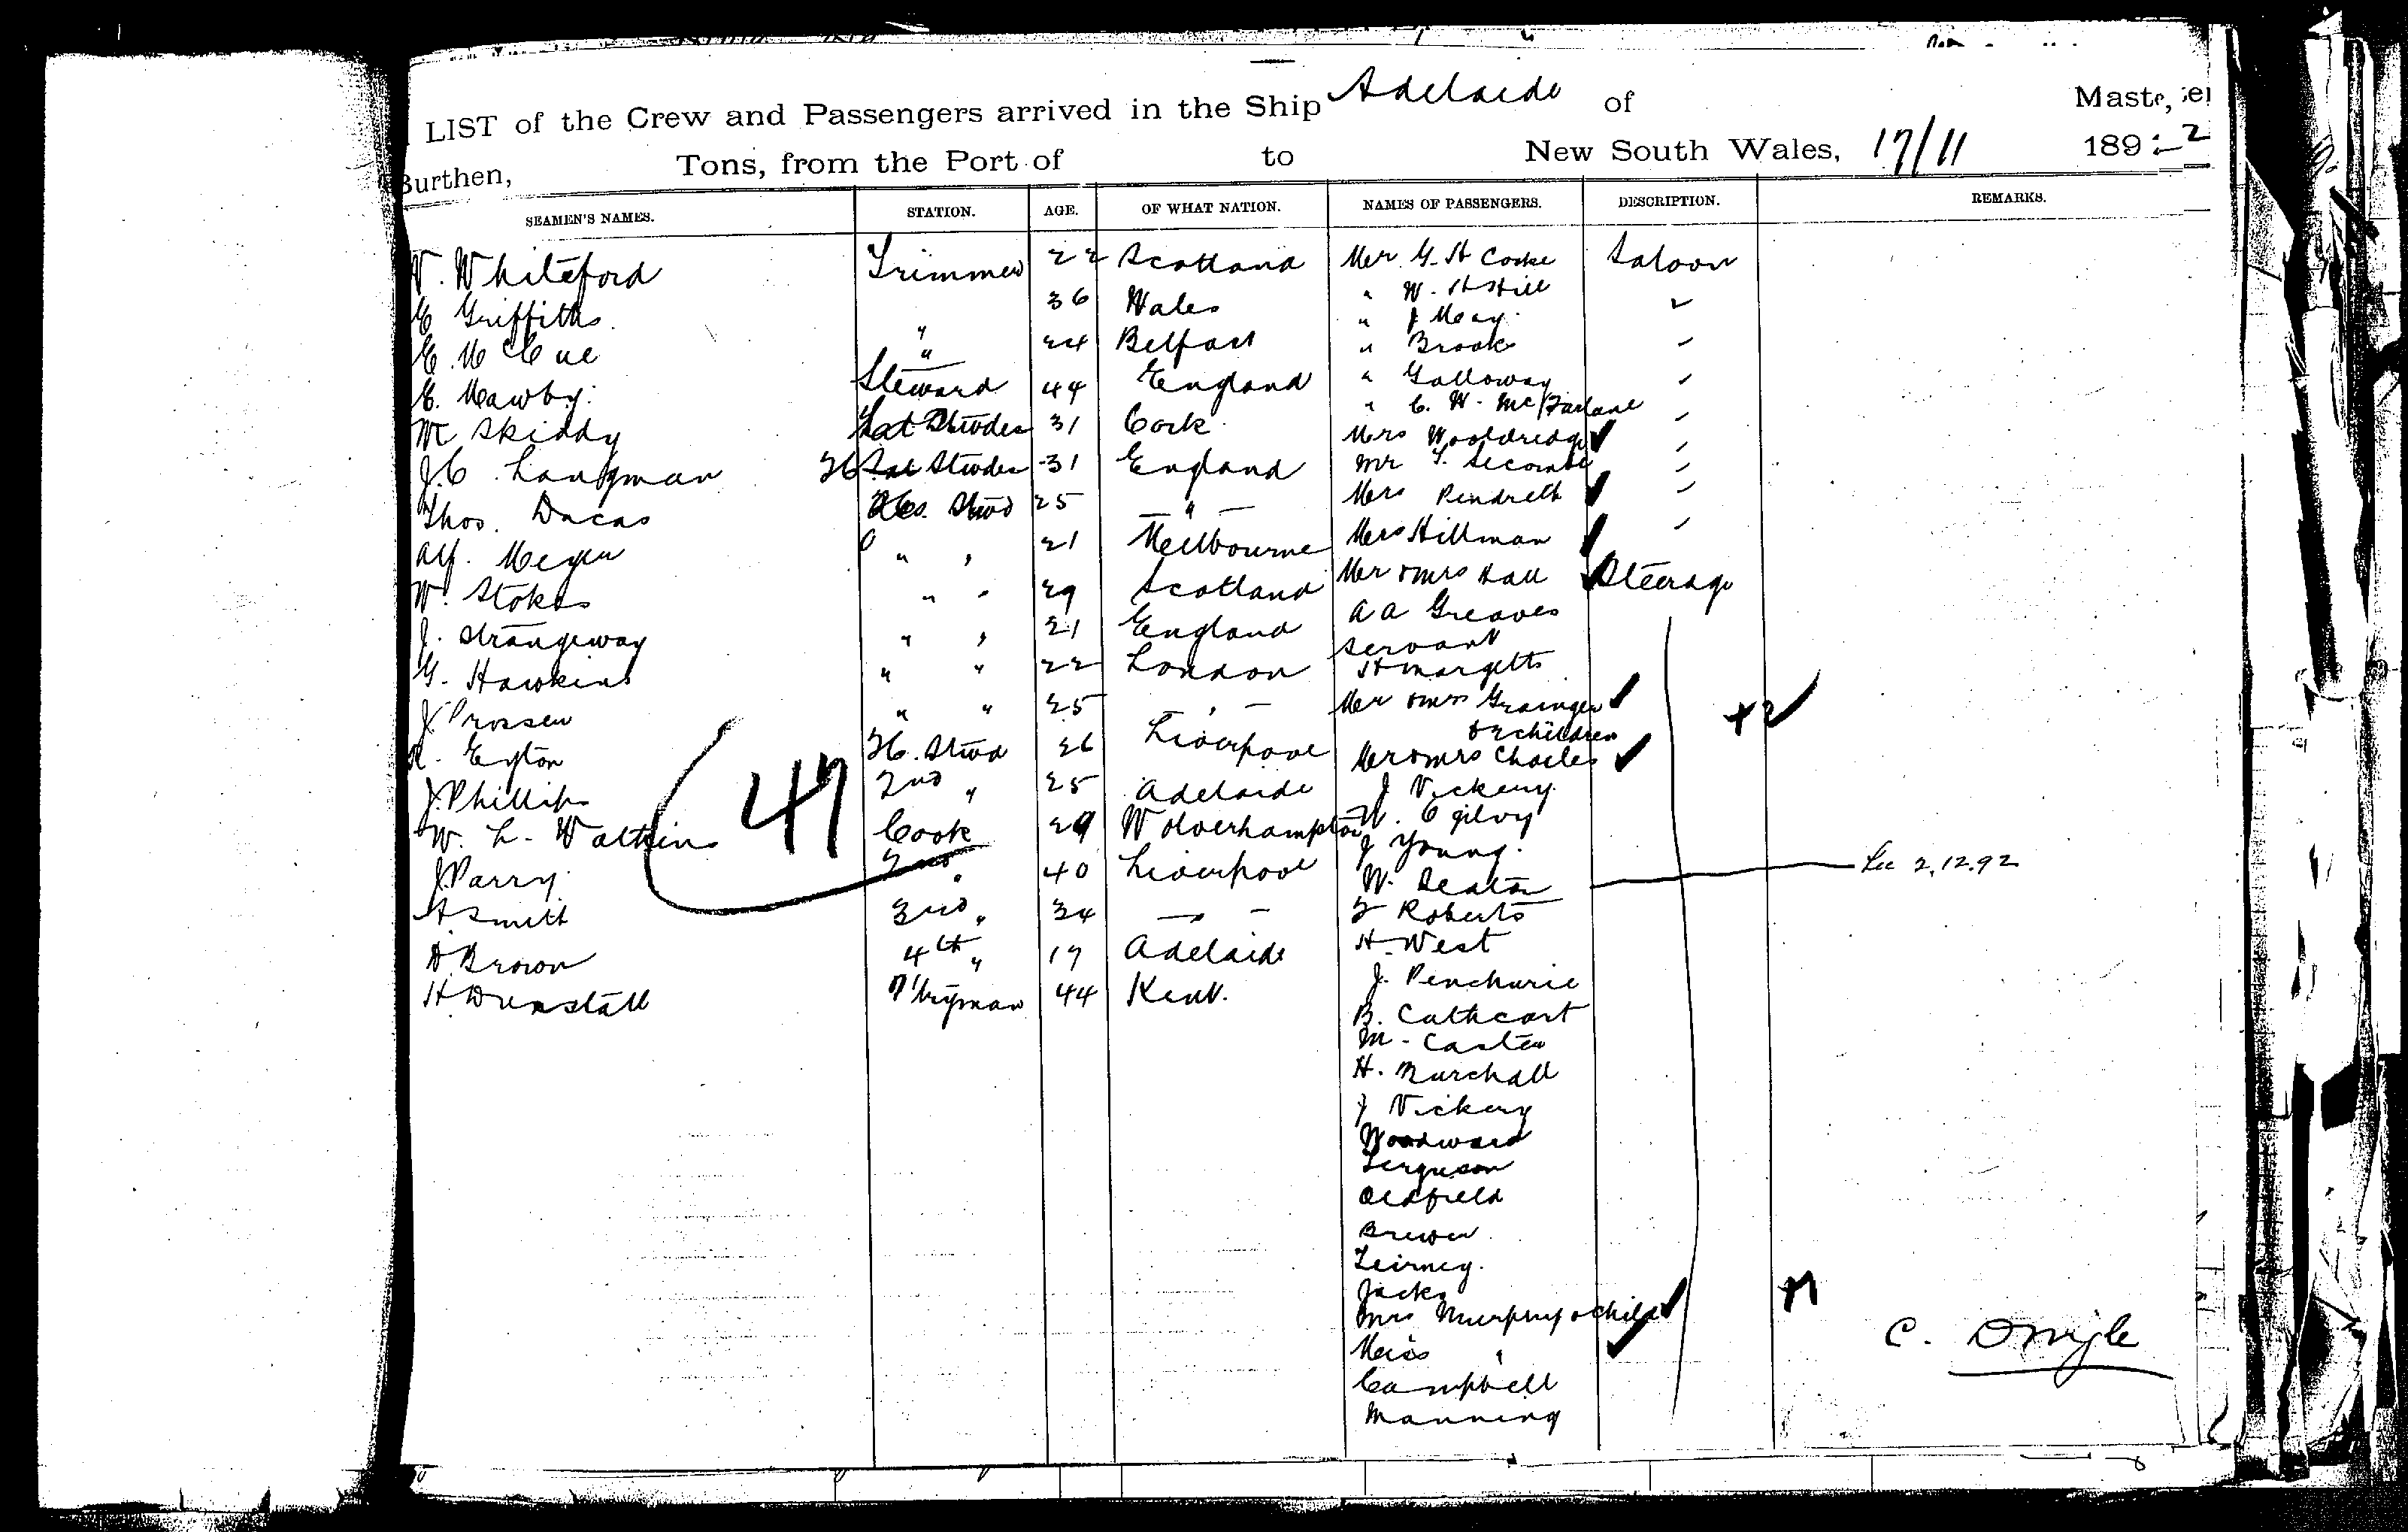 LIST of the Crew and Passengers arrived in the Ship Adelaide of Master,
Burthen, Tons, from the Port of to New South Wales, 17/11 1892
SEAMEN'S NAMES. STATION. AGE. OF WHAT NATION. NAMES OF PASSENGERS. DESCRIPTION. REMARKS.
Whiteford Trimmer 22 Scotland Mr G. H Cooke Saloon
E Griffiths " 36 Wales " W. H Hill "
E. McCue " 24 Belfast " J May
E. Mawby Steward 44 England " Brook
Skiddy 31 Cork " Galloway
J. C. Langman 31 England " C. W. McFarlane
Thos. Ducas 25 " Mrs Wooldredge
Alf. Meyer " " 21 Melbourne Mr Secombe
W. Stokes " " 29 Scotland Mrs Pendreth
J. Strangeway " " 21 England Mrs Hillman
G. Hawkins " " 22 London Mr & Mrs Hall Steerage
J Prosser " " 25 " A A Greaves
Eyton Stwd 26 Liverpool servant
J. Phillips 2nd " 25 Adelaide H Margetts
W. L. Watkins Cook 29 Wolverhampton Mr & Mrs Grainger
& 2 children +2
J Parry 2nd " 40 Liverpool Mr & Mrs Charles
A Smith 3rd " 34 " J Vickery
Brown 4th " 17 Adelaide W. Ogilvy
H. Dunstall 44 Kent. J Young
47
W. Seaton 2.12.92
Roberts
H. West
J. Penchurie
B. Cathcart
M. Caster
H. Burchall
J Vickery
Woodward
Ferguson
Oldfield
Brewer
Teirney
Jacks
Mrs Murphy & child +1
Miss "
Campbell
Manning
C.